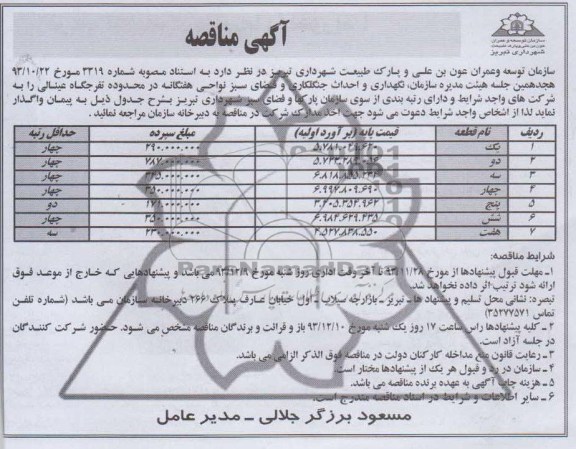 آگهی مناقصه
سازمان توسعه و عمران
عون بن علی و پارک طبیعت
شهرداری تبریز
سازمان توسعه وعمران عون بن علی و پارک طبیعت شهرداری تبریز در نظر دارد به استناد مصوبه شماره ۳۳۱۹ مورخ ۹۳/۱۰/۲۲
هجدهمین جلسه هیئت مدیره سازمان، نگهداری و احداث جنگلکاری و فضای سبز نواحی هفتگانه در محدوده تفرجگاه عینالی را به
شرکت های واجد شرایط و دارای رتبه بندی از سوی سازمان پارکها و فضای سبز شهرداری تبریز بشرح جدول ذیل به پیمان واگذار
نماید لذا از اشخاص واجد شرایط دعوت می شود جهت اخذ مدارک شرکت در مناقصه به دبیرخانه سازمان مراجعه نمائید.
ردیف نام قطعه قیمت پایه (بر آورد اولیه) مبلغ سپرده حداقل رتبه
۱ یک ۲۹۰.۰۰۰.۰۰۰ چهار
۲ دو ۷۸۷.۰۰۰.۰۰۰ چهار
۳ سه ۳۴۵.۰۰۰.۰۰۰ چهار
۴ چهار ۶.۹۹۲.۸۰۹.۶۹۰ ۳۵۰.۰۰۰.۰۰۰ چهار
۵ پنج ۳.۴۰۵.۳۵۴.۹۶۲ ۱۷۱.۰۰۰.۰۰۰ دو
۶ شش ۶.۹۸۴.۶۲۹.۲۳۵ ۳۵۰.۰۰۰.۰۰۰ چهار
۷ هفت ۴.۵۲۷.۸۳۸.۵۵۰ ۲۳۰.۰۰۰.۰۰۰ سه
شرایط مناقصه:
۱ـ مهلت قبول پیشنهادها از مورخ ۹۳/۱۱/۲۸ تا آخر وقت اداری روز شنبه مورخ ۹۳/۱۲/۹ می باشد و پیشنهادهایی که خارج از موعد فوق
ارائه شود ترتیب اثر داده نخواهد شد.
تبصره: نشانی محل تسلیم و پیشنهاد ها ـ تبریز ـ بازارچه سیلاب ـ اول خیابان عارف پلاک ۲۶۶ دبیرخانه سازمان می باشد (شماره تلفن
تماس ۳۵۲۷۷۵۷۱)
۲ـ کلیه پیشنهادها راس ساعت ۱۷ روز یک شنبه مورخ ۹۳/۱۲/۱۰ باز و قرائت و برندگان مناقصه مشخص می شود. حضور شرکت کنندگان
در جلسه آزاد است.
۳ـ رعایت قانون منع مداخله کارکنان دولت در مناقصه فوق الذکر الزامی می باشد.
۴ـ سازمان در رد و قبول هر یک از پیشنهادها مختار است.
۵ـ هزینه چاپ آگهی به عهده برنده مناقصه می باشد.
۶ـ سایر اطلاعات و شرایط در اسناد مناقصه مندرج است.
مسعود برزگر جلالی ـ مدیر عامل